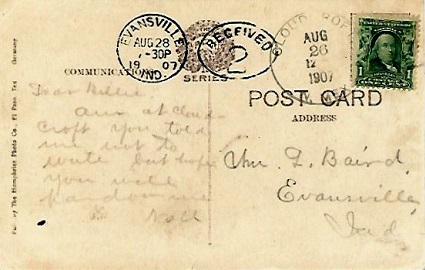 EVANSVILLE
AUG 28
7-30P
1907
IND.
RECEIVED
2
CLOUD
AUG
26
12
1907
N. MEX.
1
COMMUNICATION
SERIES
POST CARD
ADDRESS
Dear Willie
am at cloud-
croft you told
me not to
write but hope
you will
pardon me
Nell
Wm. F. Baird,
Evansville,
Ind,
Photo Co., El Paso Tex Germany